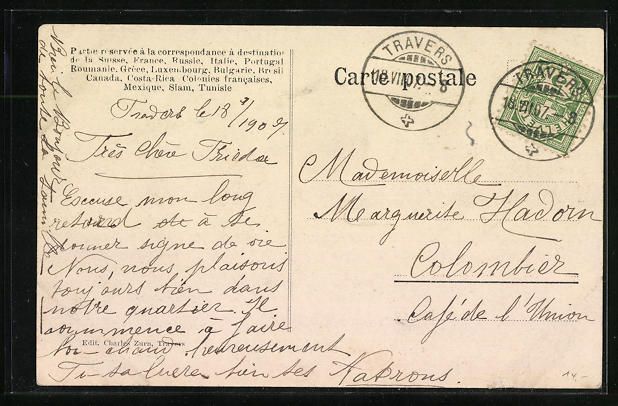 Partie réservée à la correspondance à destination
de la Suisse, France, Russie, Italie, Portugal
Roumanie, Grèce, Luxembourg, Bulgarie, Brésil
Canada, Costa-Rica Colonies françaises,
Mexique, Siam, Tunisie
Travers le 18/7 1907.
Très chère Frieda
Escuse mon long
retard à te
donner signe de vie
Nous, nous plaisons
toujours bien dans
notre quartier. Il
commmence à faire
bon chaud heureusement
Tu salueras bien tes Patrons.
de toute la famille
Edit. Charles Zurn, Travers
Carte postale
TRAVERS
18.VII.07. 8
TRAVERS
18.VII.07. 8
Mademoiselle
Marguerite Hadorn
Colombier
Café de l'Union
14.-